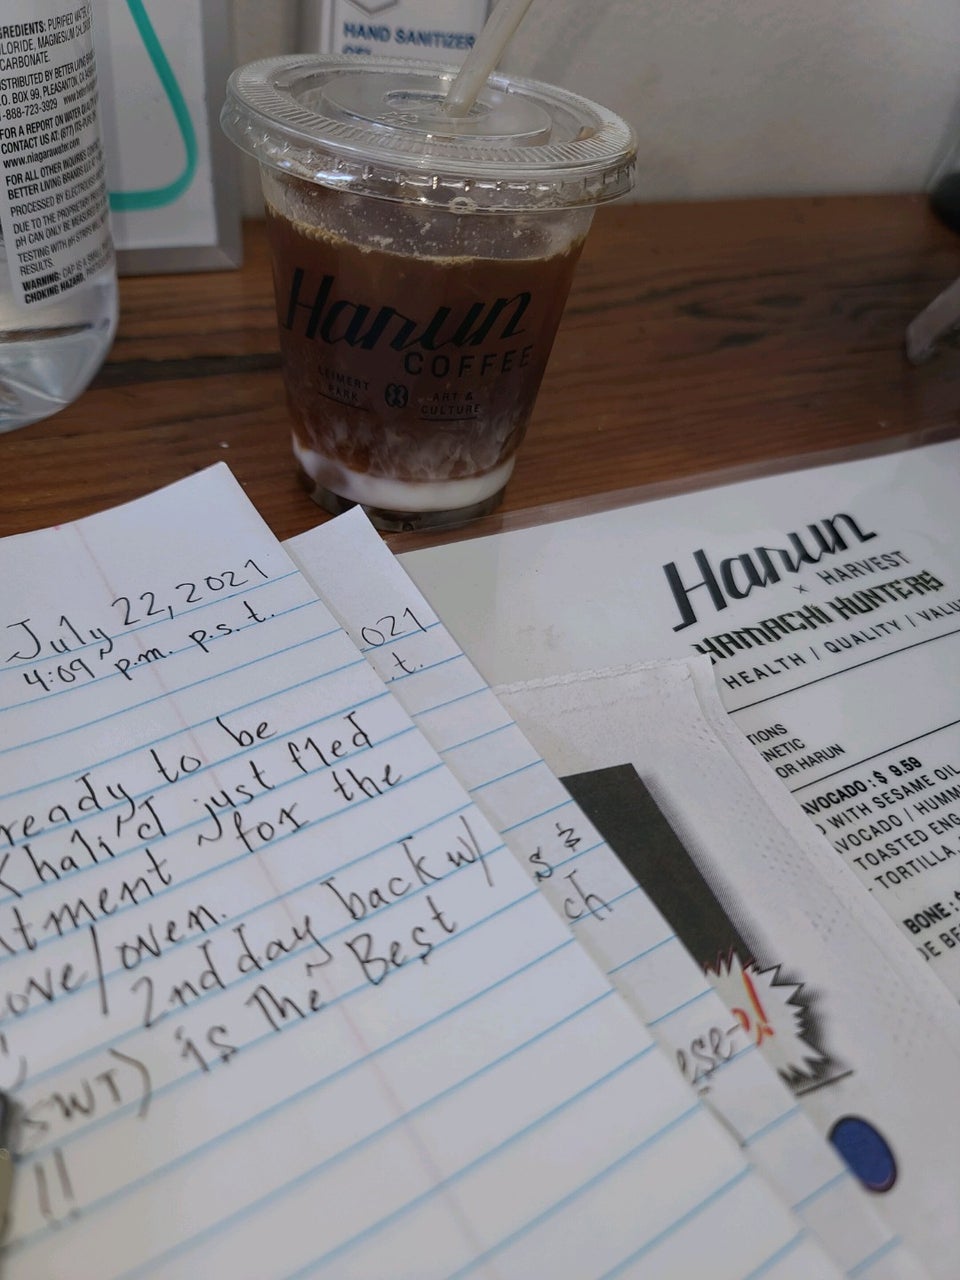 GREDIENTS: PURIFIED WATER,
LORIDE, MAGNESIUM
CARBONATE.
DISTRIBUTED BY BETTER LIVING
P.O. BOX 99, PLEASANTON, CA
1-888-723-3929 www.
FOR A REPORT ON WATER
CONTACT US AT: (877)
www.niagarawater.com
FOR ALL OTHER INQUIRIES
BETTER LIVING BRANDS LLC
PROCESSED BY
DUE TO THE PROPRIETARY
pH CAN ONLY BE MEASURED
TESTING WITH pH STRIPS
RESULTS.
WARNING: CAP IS A SMALL
CHOKING HAZARD.
HAND SANITIZER
GEL
Harun
COFFEE
LEIMERT
PARK
ART &
CULTURE
July 22, 2021
4:09 p.m. p.s.t.
ready to be
Khali'd just fled
tment for the
ove/oven.
2nd day back w/
SWT) is The Best
!!
021
.t.
s &
ch
ese-
o!
Harun
x HARVEST
HAMACHI HUNTERS
HEALTH | QUALITY | VALU
TIONS
NETIC
OR HARUN
AVOCADO: $ 9.59
WITH SESAME OIL
AVOCADO / HUMM
TOASTED ENG
- TORTILLA
BONE: $
DE BE